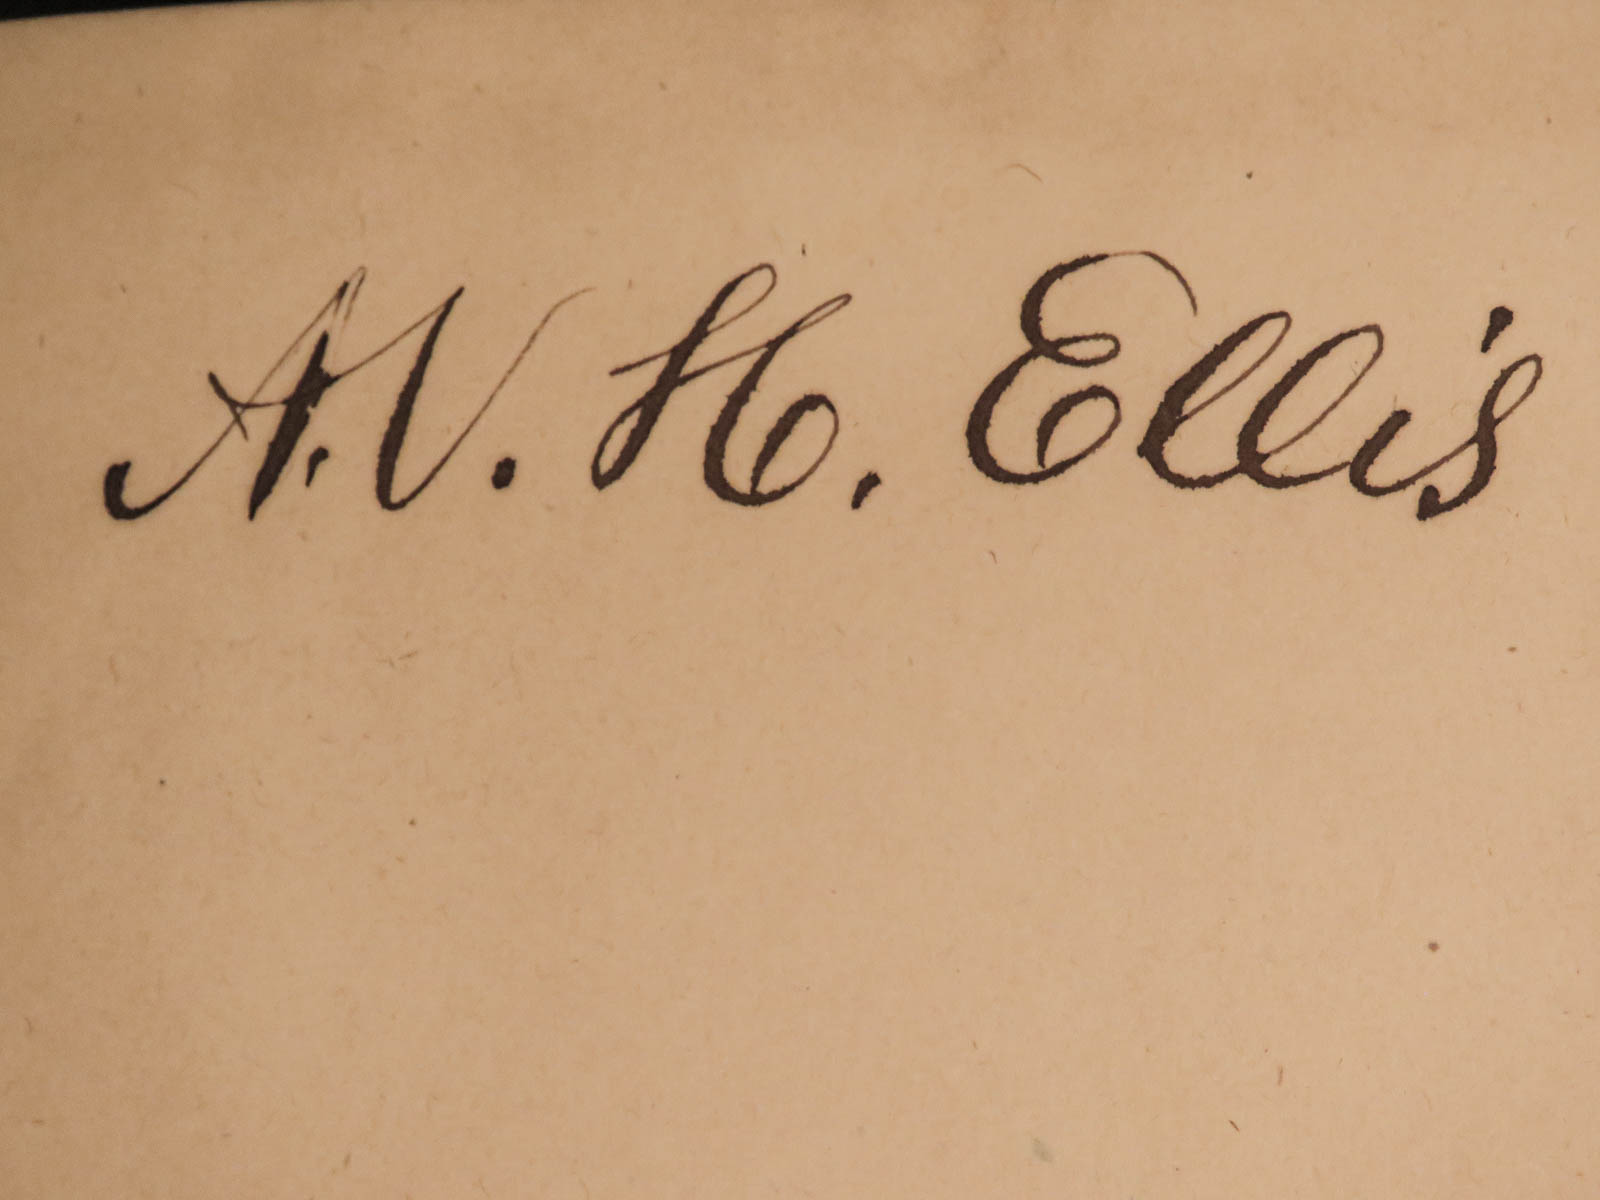 A. V. H. Ellis